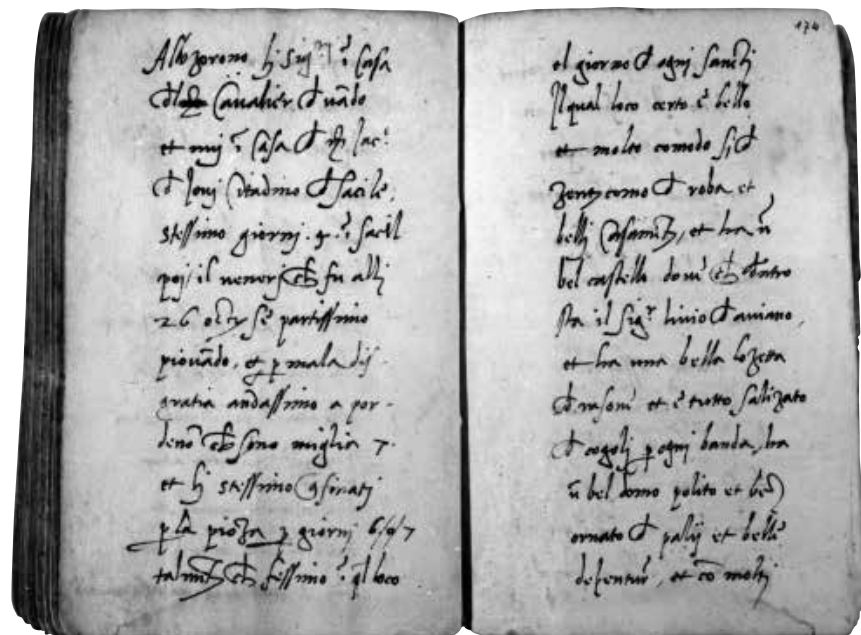 Allozorono li Sigri ī Casa
Cavalier d uādo
et mij ī Casa d
d Joui Citadino d sacile,
stessimo giorni . 4 . ī sacil
poj il venerj ch fu alli
26 se partissimo
piouādo, et p mala dis-
gratia andassimo a por-
denō ch sono miglia 7.
et li stessimo asinatj
p la pioza p giorni 6/o/7
talmēte ch fessimo ī ql loco
174
el giorno d ogni Sanctj
Il qual loco certo è bello
et molto comodo sj d
zente como d roba et
belli Casamētj, et ha ū
bel castello doue ch dentro
sta il Sigr livio d aviano,
et ha una bella lozetta
d rasoni et è tutto salizato
d cogolj p ogni banda, ha
ū bel domo polito et bē
ornato d palij et belle
depentur, et cō moltj